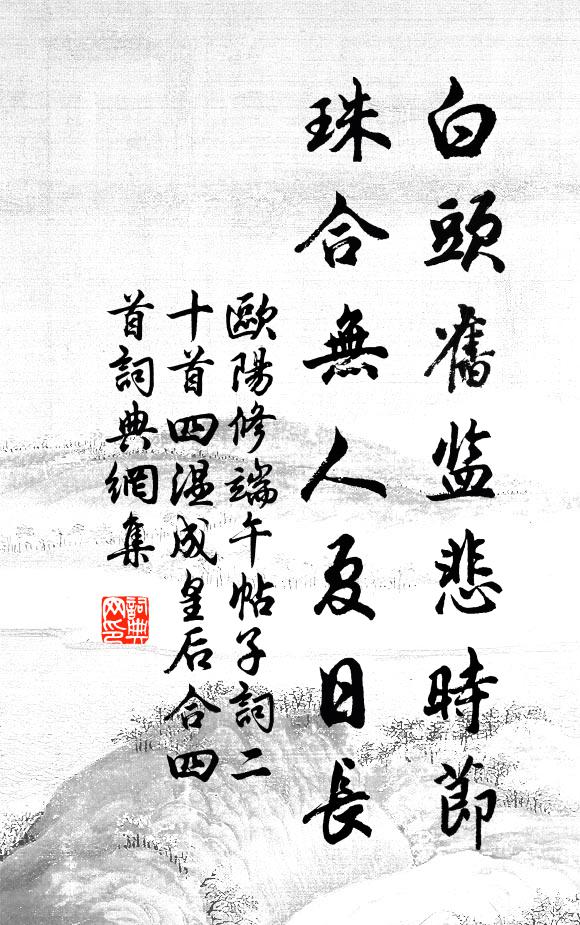 白頭舊监悲時節
珠合無人夏日長
歐陽修端午帖子詞二
十首四温成皇后合四
首詞典網集
詞典
网印